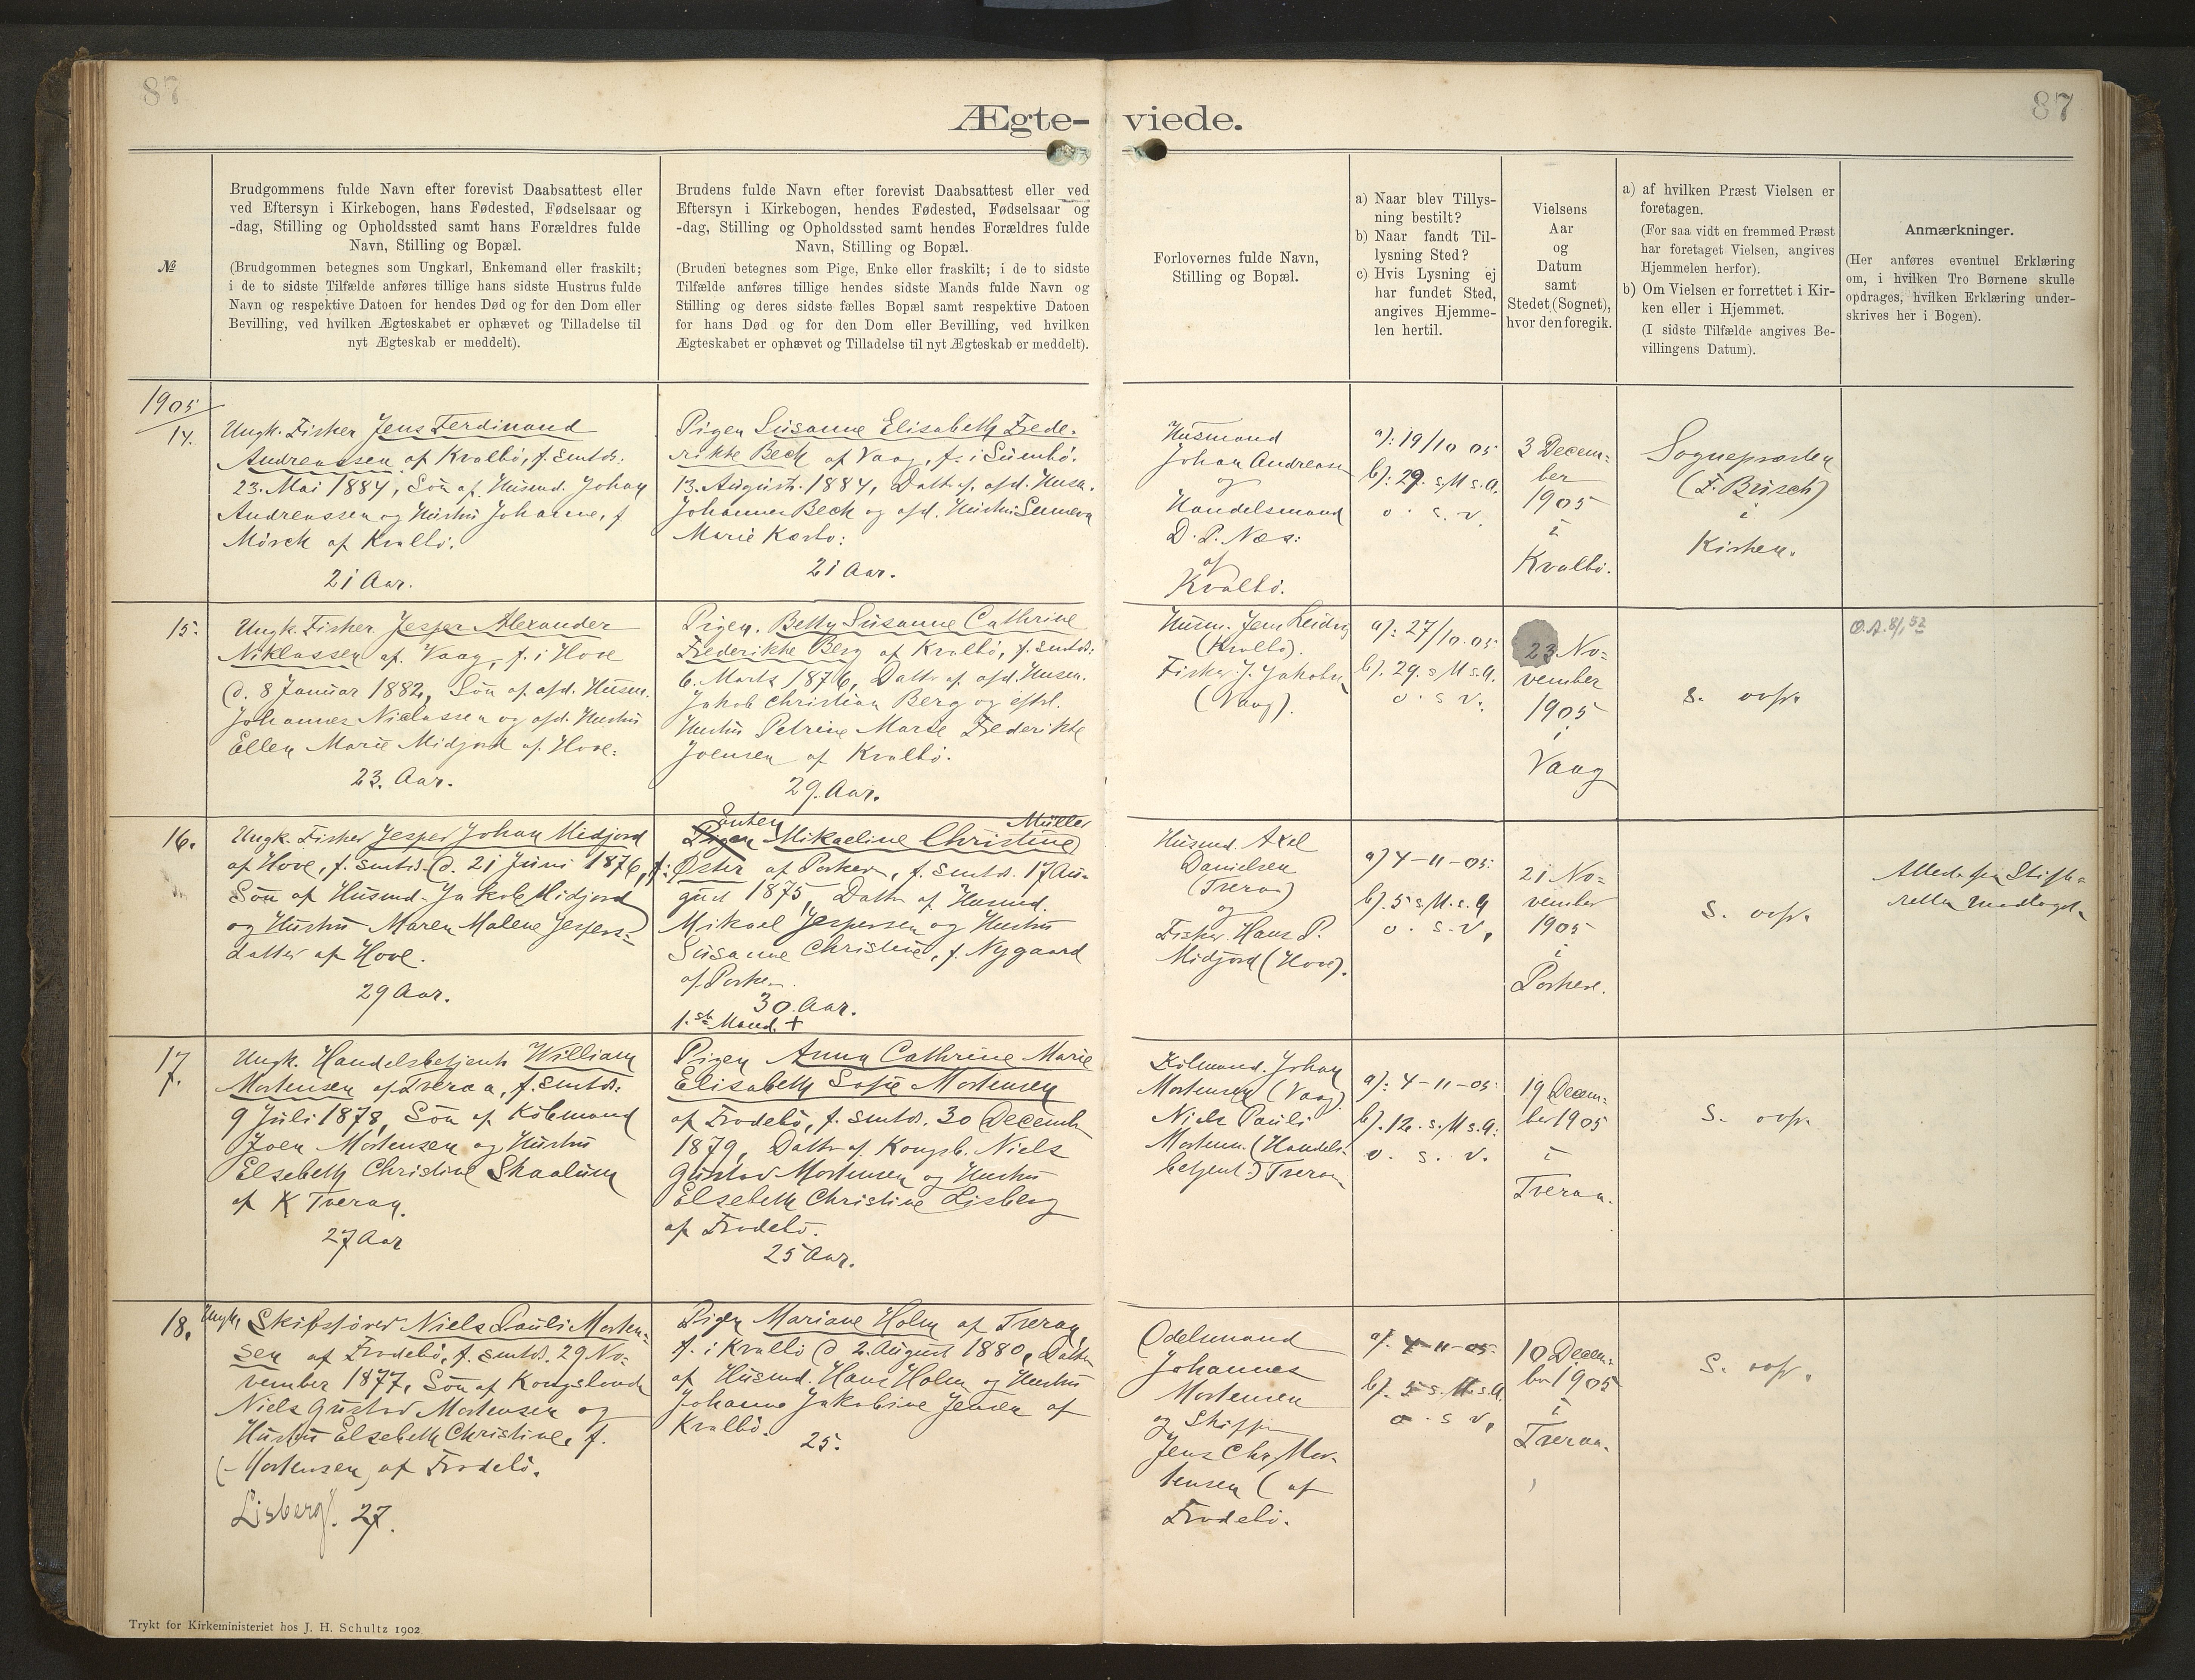 87
87
Ægte-viede.
№
Brudgommens fulde Navn efter forevist Daabsattest eller
ved Eftersyn i Kirkebogen, hans Fødested, Fødselsaar og
-dag, Stilling og Opholdssted samt hans Forældres fulde
Navn, Stilling og Bopæl.
(Brudgommen betegnes som Ungkarl, Enkemand eller fraskilt;
i de to sidste Tilfælde anføres tillige hans sidste Hustrus fulde
Navn og respektive Datoen for hendes Død og for den Dom eller
Bevilling, ved hvilken Ægteskabet er ophævet og Tilladelse til
nyt Ægteskab er meddelt).
Brudens fulde Navn efter forevist Daabsattest eller ved
Eftersyn i Kirkebogen, hendes Fødested, Fødselsaar og
-dag, Stilling og Opholdssted samt hendes Forældres fulde
Navn, Stilling og Bopæl.
(Bruden betegnes som Pige, Enke eller fraskilt; i de to sidste
Tilfælde anføres tillige hendes sidste Mands fulde Navn og
Stilling og deres sidste fælles Bopæl samt respektive Datoen
for hans Død og for den Dom eller Bevilling, ved hvilken
Ægteskabet er ophævet og Tilladelse til nyt Ægteskab er meddelt).
Forlovernes fulde Navn,
Stilling og Bopæl.
a) Naar blev Tillys-
ning bestilt?
b) Naar fandt Til-
lysning Sted?
c) Hvis Lysning ej
har fundet Sted,
angives Hjemme-
len hertil.
Vielsens
Aar
og
Datum
samt
Stedet (Sognet),
hvor den foregik.
a) af hvilken Præst Vielsen er
foretagen.
(For saa vidt en fremmed Præst
har foretaget Vielsen, angives
Hjemmelen herfor).
b) Om Vielsen er forrettet i Kir-
ken eller i Hjemmet.
(I sidste Tilfælde angives Be-
villingens Datum).
Anmærkninger.
(Her anføres eventuel Erklæring
om, i hvilken Tro Børnene skulle
opdrages, hvilken Erklæring under-
skrives her i Bogen).
1905
14.
Ungk. Fisker Jens Ferdinand
Andreassen af Kvalbö, f. smtds.
23. Mai 1884, Sön af Husmd. Johan
Andreassen og Hustru Johanne, f.
Mörck af Kvalbö.
21 Aar.
Pigen Susanne Elisabeth Frede-
rikke Beck af Vaag, f. i Sumbö.
13. August 1884, Datt. af afd. Husm.
Johannes Beck og afd. Hustru Sunneva
Marie Kasto:
21 Aar.
Husmand
Johan Andreasen
og
Handelsmand
D. P. Næs:
af
Kvalbö.
a): 19/10 05
b): 29. s. M s. A.
o. s. v.
3 Decem-
ber
1905
i
Kvalbö.
Sognepræsten
(F. Busch)
i
Kirken.
15.
Ungk. Fisker Jesper Alexander
Niklassen af Vaag, f. i Hove
d. 8 Januar 1882, Sön af afd. Husm.
Johannes Niclassen og afd. Hustru
Ellen Marie Midjord af Hove.
23. Aar.
Pigen Betty Susanne Cathrine
Frederikke Berg af Kvalbö, f. smtds.
6. Marts 1876, Datt. af afd. Husm.
Jakob Christian Berg og
Hustru Petrine Marie Frederikke
Joensen af Kvalbö.
29. Aar.
Husm. Jens
(Kvalbö).
Fisker J. Jakobsen
(Vaag).
a): 27/10.05
b). 29. s M s. A.
o. s v.
23 No-
vember
1905
i
Vaag
s. ovfr.
O.A. 8/1 52
16.
Ungk. Fisker Jesper Johan Midjord
af Hove, f. smtds. d. 21 Juni 1876,
Sön af Husmd. Jakob Midjord
og Hustru Maren Malene Jespers-
datter af Hove.
29 Aar.
Enken
Pigen Mikaeline Christine Müller
f: Øster af Porkere, f. smtds. 17 Au-
gust 1875, Datt. af Husmd.
Mikael Jespersen og Hustru
Susanne Christine, f. Nygaard
af Porke
30 Aar.
1.ste Mand +
Husmd. Axel
Danielsen
(Tveraa)
og
Fisker Hans P.
Midjord (Hove).
a) 4-11-05.
b). 5 s. M. s. A
o. s. v.
21 No-
vember
1905
i
Porkere.
s. ovfr.
Attest fra Skifte-
retten modtaget
17.
Ungk. Handelsbetjent William
Mortensen af Tveraa, f. smtds.
9 Juli 1878, Sön af Köbmand
Joen Mortensen og Hustru
Elsebeth Christine Skaalum
af K Tveraa.
27 Aar
Pigen Anna Cathrine Marie
Elisabeth Sofie Mortensen
af Frodebö, f. smtds. 30 Decemb.
1879, Datt. af Kongsb. Niels
Gustav Mortensen og Hustru
Elsebeth Christine Lisberg
af Frodebö.
25 Aar.
Kölmand. Johan
Mortensen (Vaag)
Niels Pauli
Mortensen (Handels-
betjent) Tveraa
a): 4-11-05.
b). 12. s. M s. A.
o. s. v.
19 Decem-
ber 1905
i
Tveraa.
s. ovfr.
18.
Ungk. Skibsförer Niels Pauli Morten-
sen af Frodebö, f. smtds. 29 No-
vember 1877, Sön af Kongsbonde
Niels Gustav Mortensen og
Hustru Elsebeth Christine, f.
(Mortensen) af Frodebö.
Lisberg. 27.
Pigen Mariane Holm af Tveraa,
f. i Kvalbö d 2. August 1880, Datter
af Husmd. Hans Holm og Hustru
Johanne Jakobine Jensen af
Kvalbö.
25.
Odelsmand
Johannes
Mortensen
og Skipper
Jens Chr. Mor-
tensen (af
Frodebö.
a). 4-11-05.
b). 5 s. M. s. A.
o. s v.
10 Decem-
ber 1905
i
Tveraa.
s. ovfr.
Trykt for Kirkeministeriet hos J. H. Schultz 1902